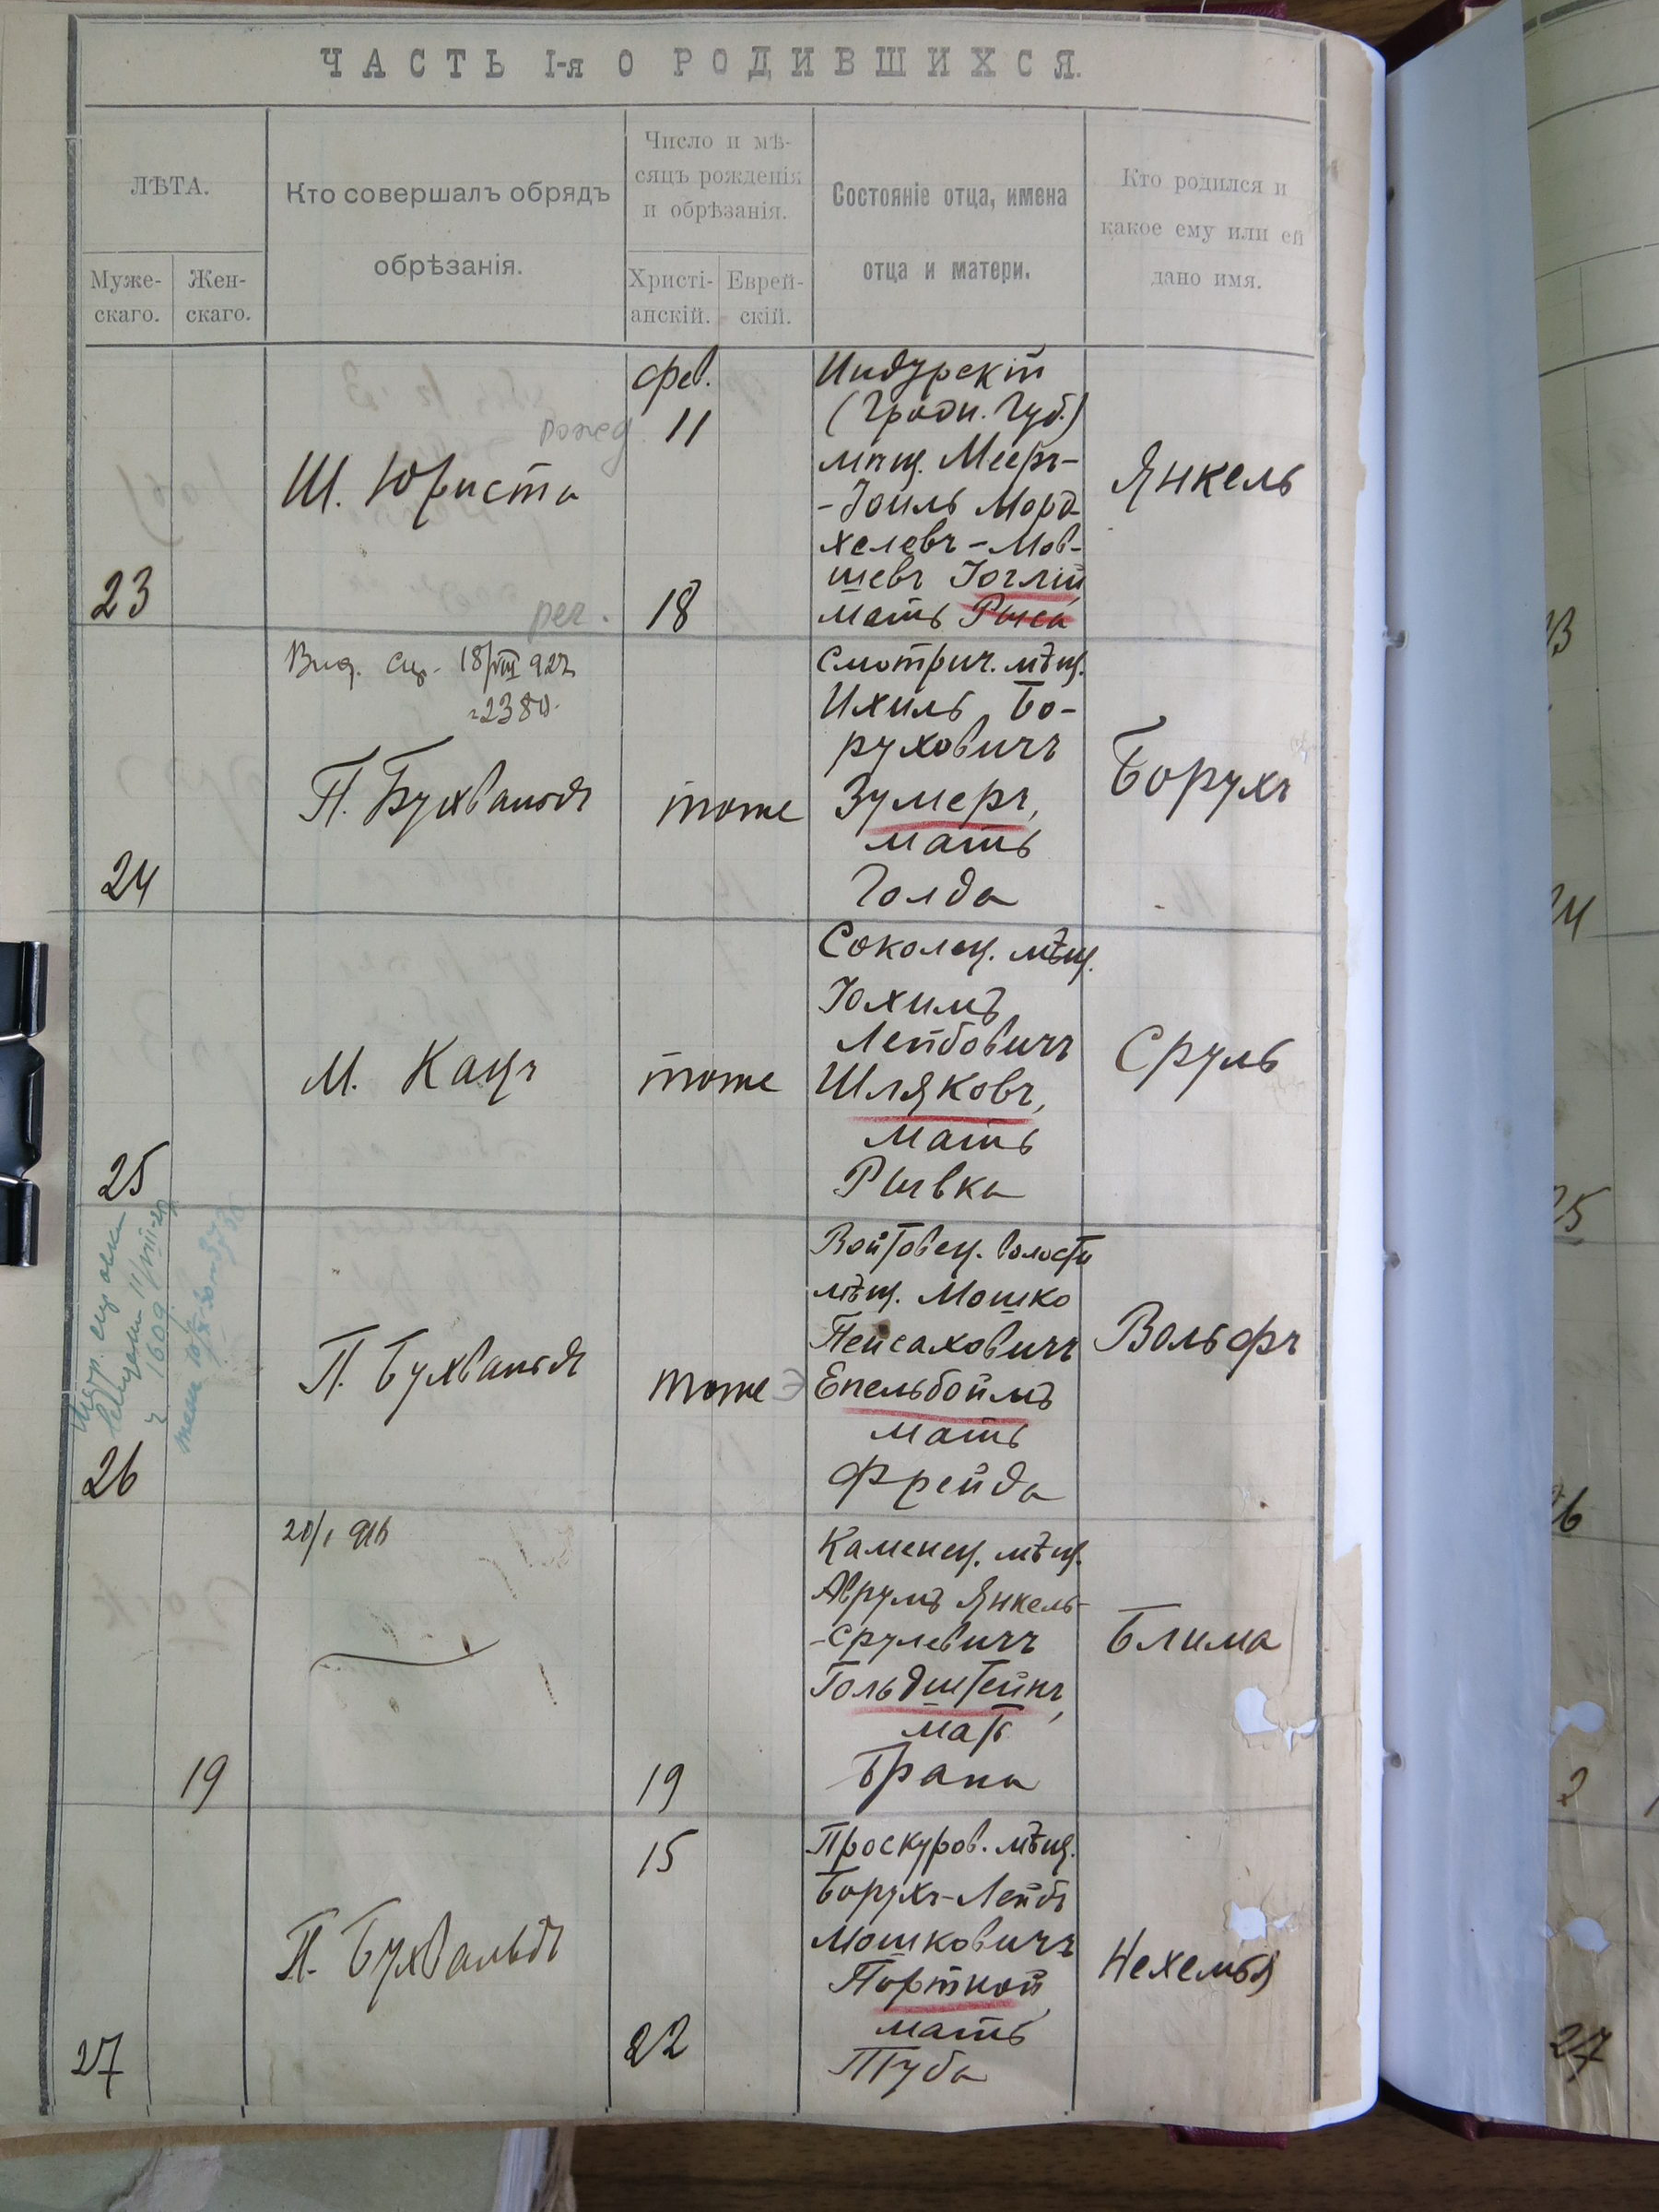 ЧАСТЬ I-я О РОДИВШИХСЯ.
ЛѢТА.
Муже-
скаго.
Жен-
скаго.
Кто совершалъ обрядъ
обрѣзанія.
Число и мѣ-
сяцъ рожденія
и обрѣзанія.
Христі-
анскій.
Еврей-
скій.
Состояніе отца, имена
отца и матери.
Кто родился и
какое ему или ей
дано имя.
23
Ш. Юриста
фев.
11
18
Индурскій
(Гродн. Губ.)
мѣщ. Мееръ-
-Іоиль Морд-
хелевъ-Мов-
шевъ
мать Рыся
Янкель
24
18/VIII 927
2380
П. Бухвальдъ
тоже
Смотрич. мѣщ.
Ихиль Бо-
руховичъ
Зумеръ,
мать
Голда
Борухъ
25
М. Кацъ
тоже
Соколец. мѣщ.
Іохимъ
Лейбовичъ
Шляковъ,
мать
Рывка
Сруль
26
П. Бухвальдъ
тоже
Э
Войтовец. волости
мѣщ. Мошко
Пейсаховичъ
Епельбоймъ
мать
Фрейда
Вольфъ
19
19
Каменец. мѣщ.
Аврумъ Янкель-
-Срулевичъ
Гольдштейнъ,
мать
Брана
Блима
27
П. Бухвальдъ
15
22
Проскуров. мѣщ.
Борухъ-Лейбъ
Мошковичъ
Портной
мать
Туба
Нехемья
23
24
25
26
27